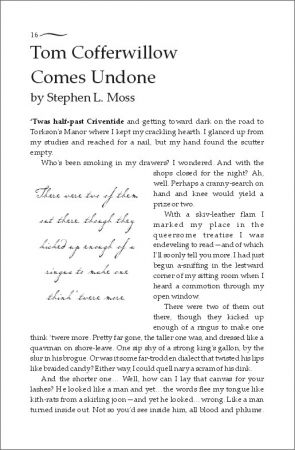 16
Tom Cofferwillow
Comes Undone
by Stephen L. Moss
'Twas half-past Criventide and getting toward dark on the road to
Torkson's Manor where I kept my crackling hearth. I glanced up from
my studies and reached for a nail, but my hand found the scutter
empty.
Who's been smoking in my drawers? I wondered. And with the
shops closed for the night? Ah,
well. Perhaps a cranny-search on
hand and knee would yield a
prize or two.
With a skiv-leather flam I
marked my place in the
queensrome treatise I was
endeveling to read—and of which
I'll soonly tell you more. I had just
begun a-sniffing in the lestward
corner of my sitting room when I
heard a commotion through my
open window.
There were two of them
out there, though they
kicked up enough of a
ringus to make one
think 'twere more
There were two of them out
there, though they kicked up
enough of a ringus to make one
think 'twere more. Pretty far gone, the taller one was, and dressed like a
quavman on shore-leave. One sip shy of a strong king's gallon, by the
slur in his brogue. Or was it some far-trodden dialect that twisted his lips
like braided candy? Either way, I could quell nary a scram of his dink.
And the shorter one... Well, how can I lay that canvas for your
lashes? He looked like a man and yet... the words flee my tongue like
kith-rats from a skirling joon—and yet he looked... wrong. Like a man
turned inside out. Not so you'd see inside him, all blood and phlume.